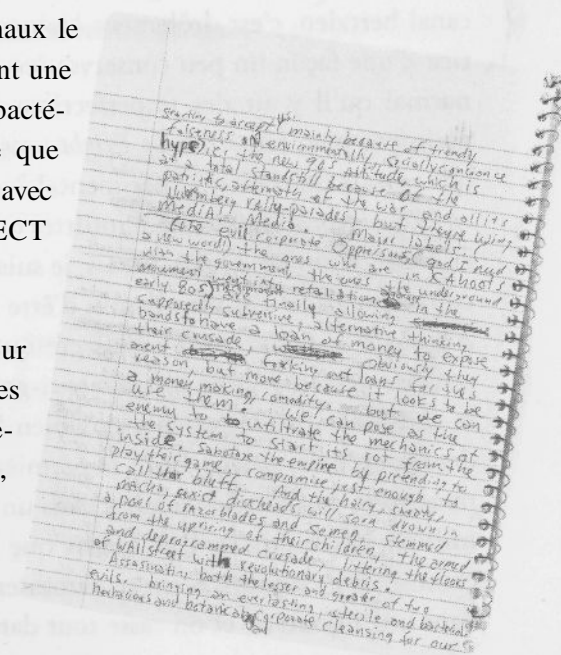 naux le
nt une
bacté-
que
avec
ECT
ur
es
é-
,
starting to accept, mainly because of trendy
falseness environmentally, socially conscience
hype), ie, the new 90s attitude which is
at a total standstill because of the
patriotic aftermath of the war and all its
Nuremberg rally-parades), but they're using
Media! Media. Major labels. (
the evil corporate Oppressors, (god I need
a new word!) the ones who are in KAhoots
with the government, the ones the underground
movement went in retaliation in the
early 80s) are finally allowing
supposedly subversive, alternative thinking
bands to have a loan of money to expose
their crusade, Obviously they
arent forking out loans for this
reason but more because it looks to be
a money making, comodity, but we can
use them! we can pose as the
enemy to infiltrate the mechanics of
the system to start its rot from the
inside. Sabotage the empire by pretending to
play their game, compromise just enough to
call their bluff. And the hairy, sweaty,
macho, sexist dickheads will soon drown in
a pool of razorblades and semen, stemmed
from the uprising of their children, the armed
and deprogrammed crusade, littering the floors
of WAll street with revolutionary debris.
Assasinating both the lesser and greater of two
evils. bringing an everlasting, sterile and bacterial
herbacious and botanical corporate cleansing for our